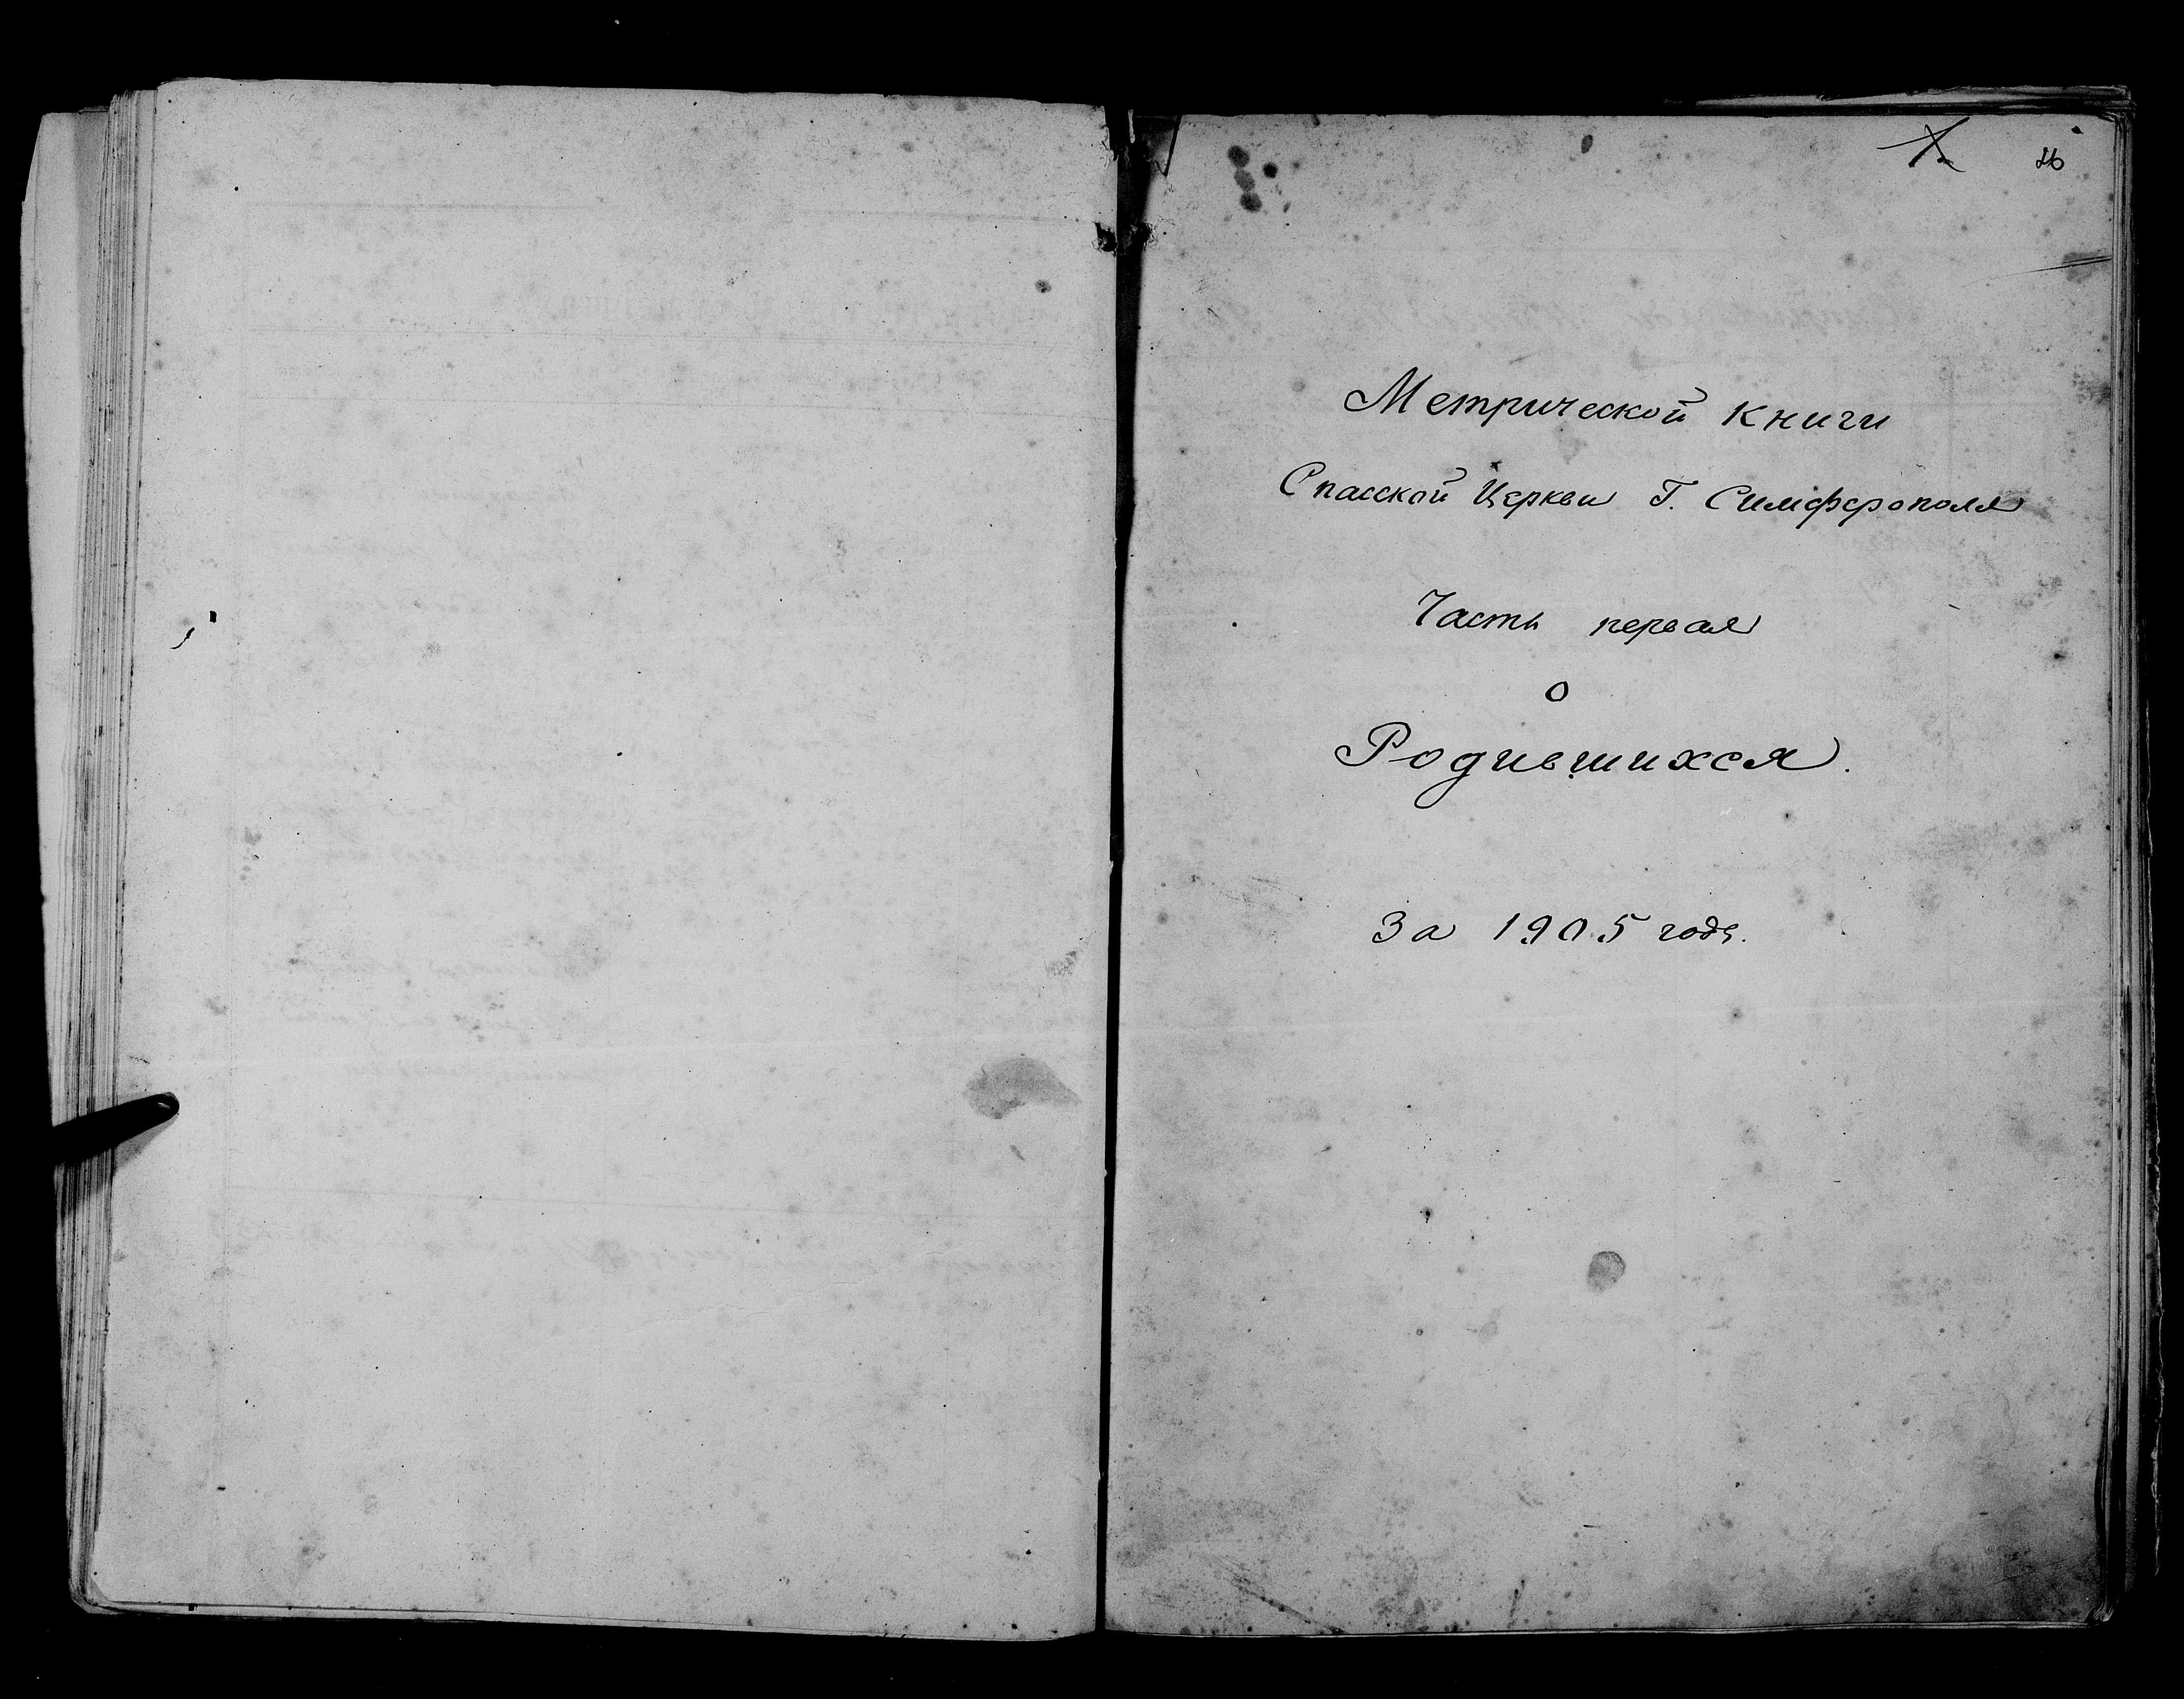 26
Метрической книги
Спасской Церкви Г. Симферополя
Часть первая
о
Родившихся.
За 1905 годъ.